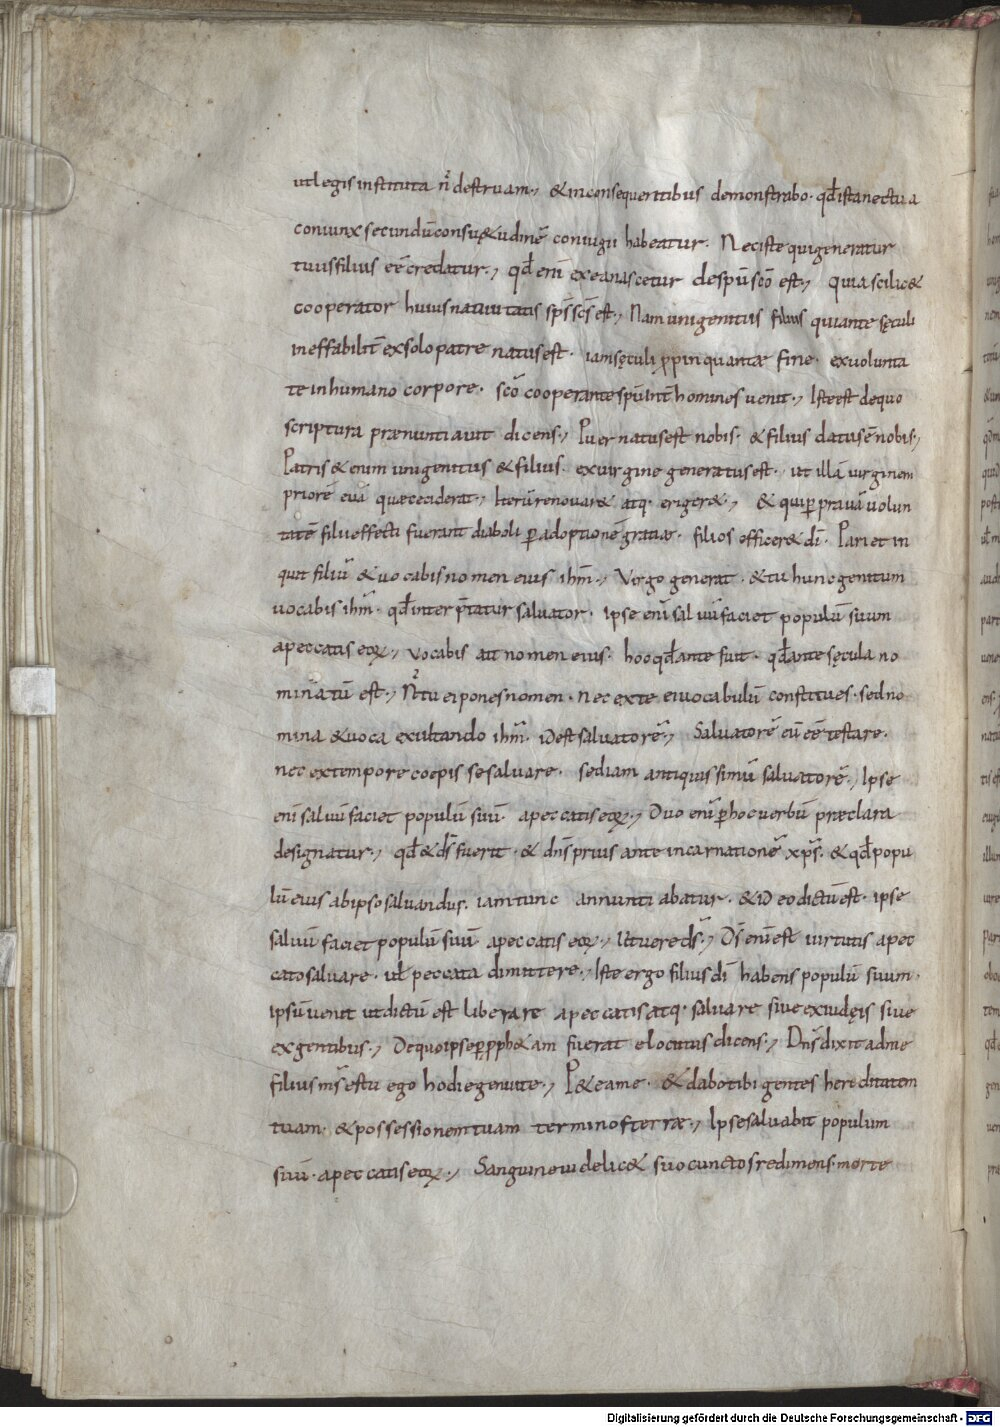 ut legis instituta n̄ destruam., & in consequentibus demonstrabo. qđ ista nec tua
coniunx secundū consu&udinē coniugii habeatur. Nec iste qui generatur
tuus filius eē credatur., qđ eni ex ea nascetur de spū scō est., quia scilic&
cooperator huius natiuitatis sps scs est., Nam unigenitus filius qui ante sęculi
ineffabilit̄ ex solo patre natus est. iam sęculi ppinquante fine. ex uolunta
te in humano corpore. scō cooperante spū int̄ homines uenit., Iste est de quo
scriptura prænuntiauit dicens., Puer natus est nobis. & filius datus ē nobis.,
Patris & enim unigenitus & filius. ex uirgine generatus est., ut illā uirginem
priorē euā quæ ceciderat., Iterū renouar& atq. eriger&., & qui p prauā uolun
tatē filii effecti fuerant diaboli p adoptionē gratiæ. filios officer& dī. Pariet in
quit filiū & uocabis nomen eius ihm., Virgo generat. & tu hunc genitum
uocabis ihm. qđ interp̄tatur saluator. ipse enī saluū faciet populū suum
a peccatis eoꝝ., Vocabis aīt nomen eius. hoc qđ ante fuit. qđ ante sęcula no
minatū est., N̄ tu ei pones nomen. nec ex te ei uocabulū constitues. sed no
mina & uoca exultando ihm. id est saluatorē., Saluatorē eū eē testare.
nec ex tempore coepisse saluare. sed iam antiquissimū saluatorē., Ipse
enī saluū faciet populū suū. a peccatis eoꝝ., Duo enī p hoc uerbū præclara
designatur., qđ & ds fuerit. & dns prius ante incarnationē xps. & qđ popu
lū eius ab ipso saluandus. iam tunc annuntiabatur. & id eo dictū est. ipse
saluū faciet populū suū. a peccatis eoꝝ., Ut uere ds., Dī enī est uirtutis a pec
cato saluare. ut peccata dimittere., Iste ergo filius dī habens populū suum.
ipsū uenit ut dictū est liberare a peccatis atq. saluare siue ex iudęis siue
ex gentibus., De quo ipse p pph&am fuerat elocutus dicens., Dns dixit ad me
filius ms es tu ego hodie genui te., P&e a me. & dabo tibi gentes hereditatem
tuam. & possessionem tuam terminos terræ., Ipse saluabit populum
suū. a peccatis eoꝝ., Sanguine uidelic& suo cunctos redimens. morte
Digitalisierung gefördert durch die Deutsche Forschungsgemeinschaft - DFG